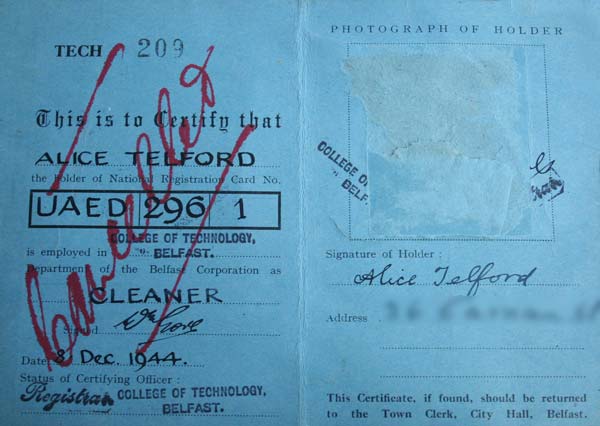 TECH 209
This is to Certify that
ALICE TELFORD
the holder of National Registration Card No.
UAED 296 1
COLLEGE OF TECHNOLOGY,
is employed in " BELFAST.
Department of the Belfast Corporation as
CLEANER
Signed
Date 8 Dec. 1944.
Status of Certifying Officer :
Registrar COLLEGE OF TECHNOLOGY,
BELFAST.
Cancelled
PHOTOGRAPH OF HOLDER
COLLEGE O
" BELF
Signature of Holder :
Alice Telford
Address
This Certificate, if found, should be returned
to the Town Clerk, City Hall, Belfast.